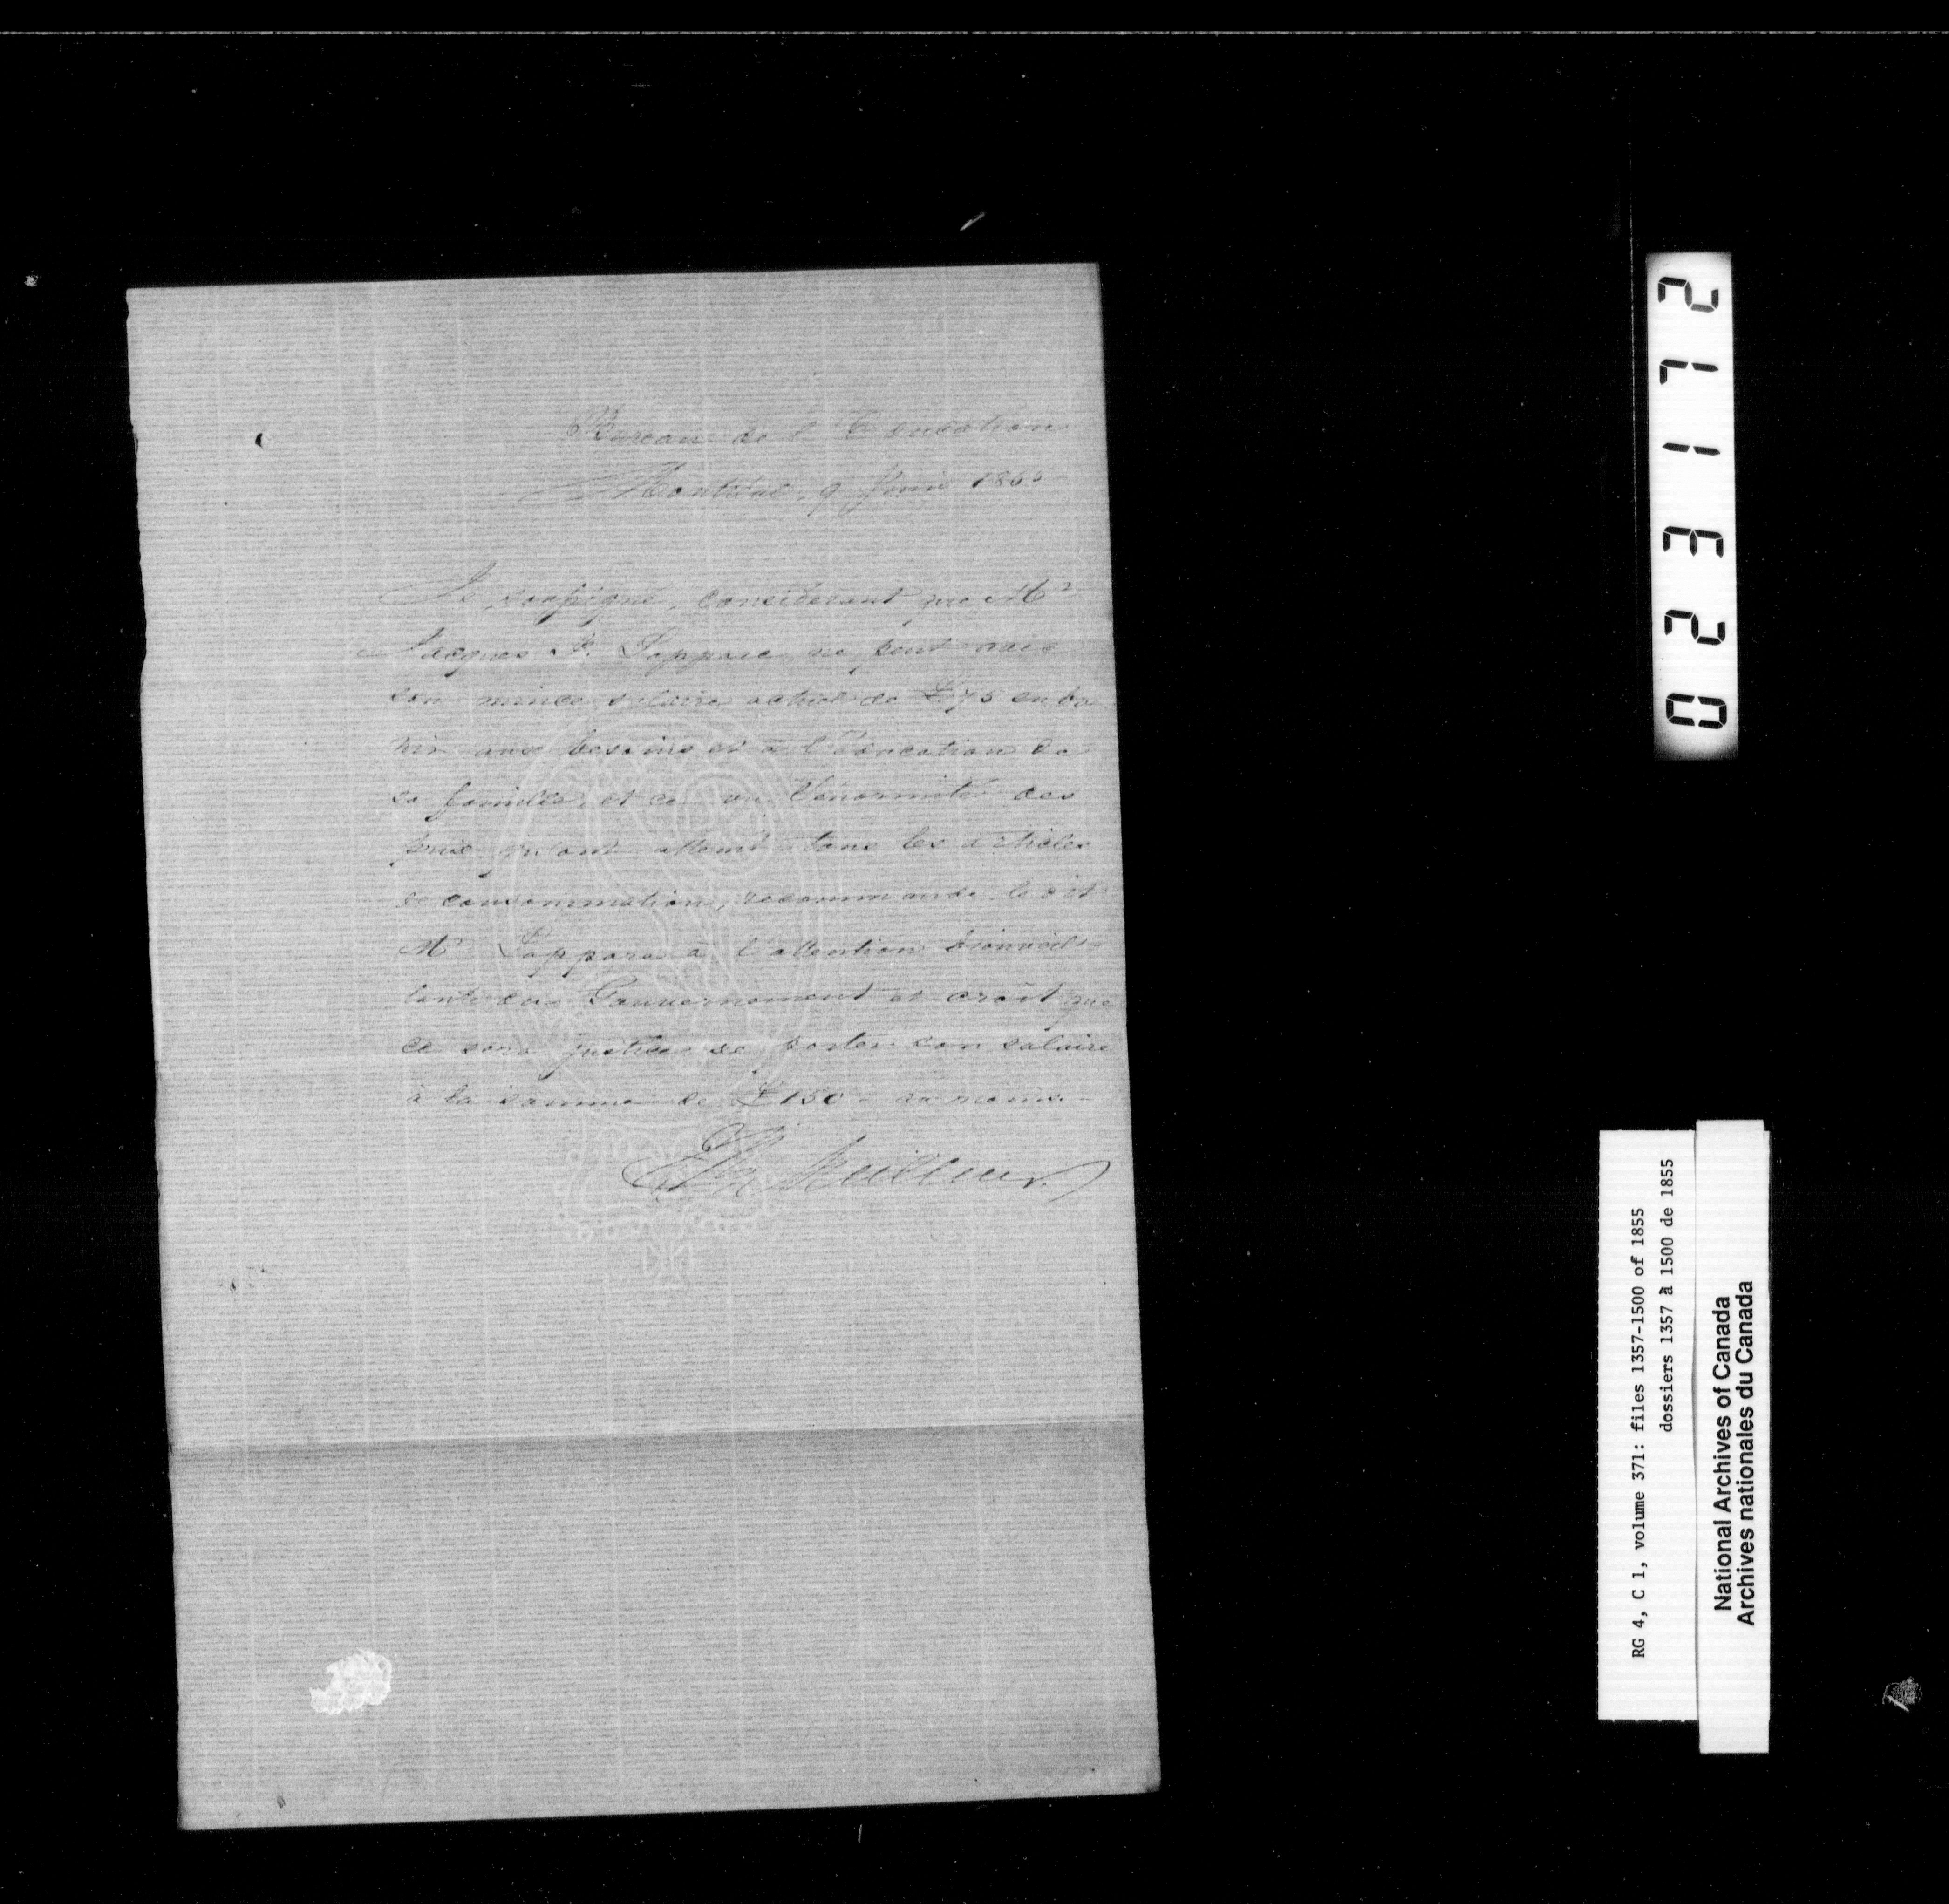 Bureau de l'Education
Montréal, 9 Juin 1855
Le soussigné, considérant que Mr
Jacques Lappare ne peut avec
son mince salaire actuel de £75 subve
nir aux besoins et à l'éducation de
sa famille, et ce vu l'énormité des
prix qu'ont atteint tous les articles
de consommation, recommande le dit
Mr Lappare à l'attention bienveil-
lante du Gouvernement et croit que
ce sera justice de porter son salaire
à la somme de £150 - au moins. -
Meilleur
271320
RG 4, C 1, volume 371: files 1357-1500 of 1855
dossiers 1357 à 1500 de 1855
National Archives of Canada
Archives nationales du Canada